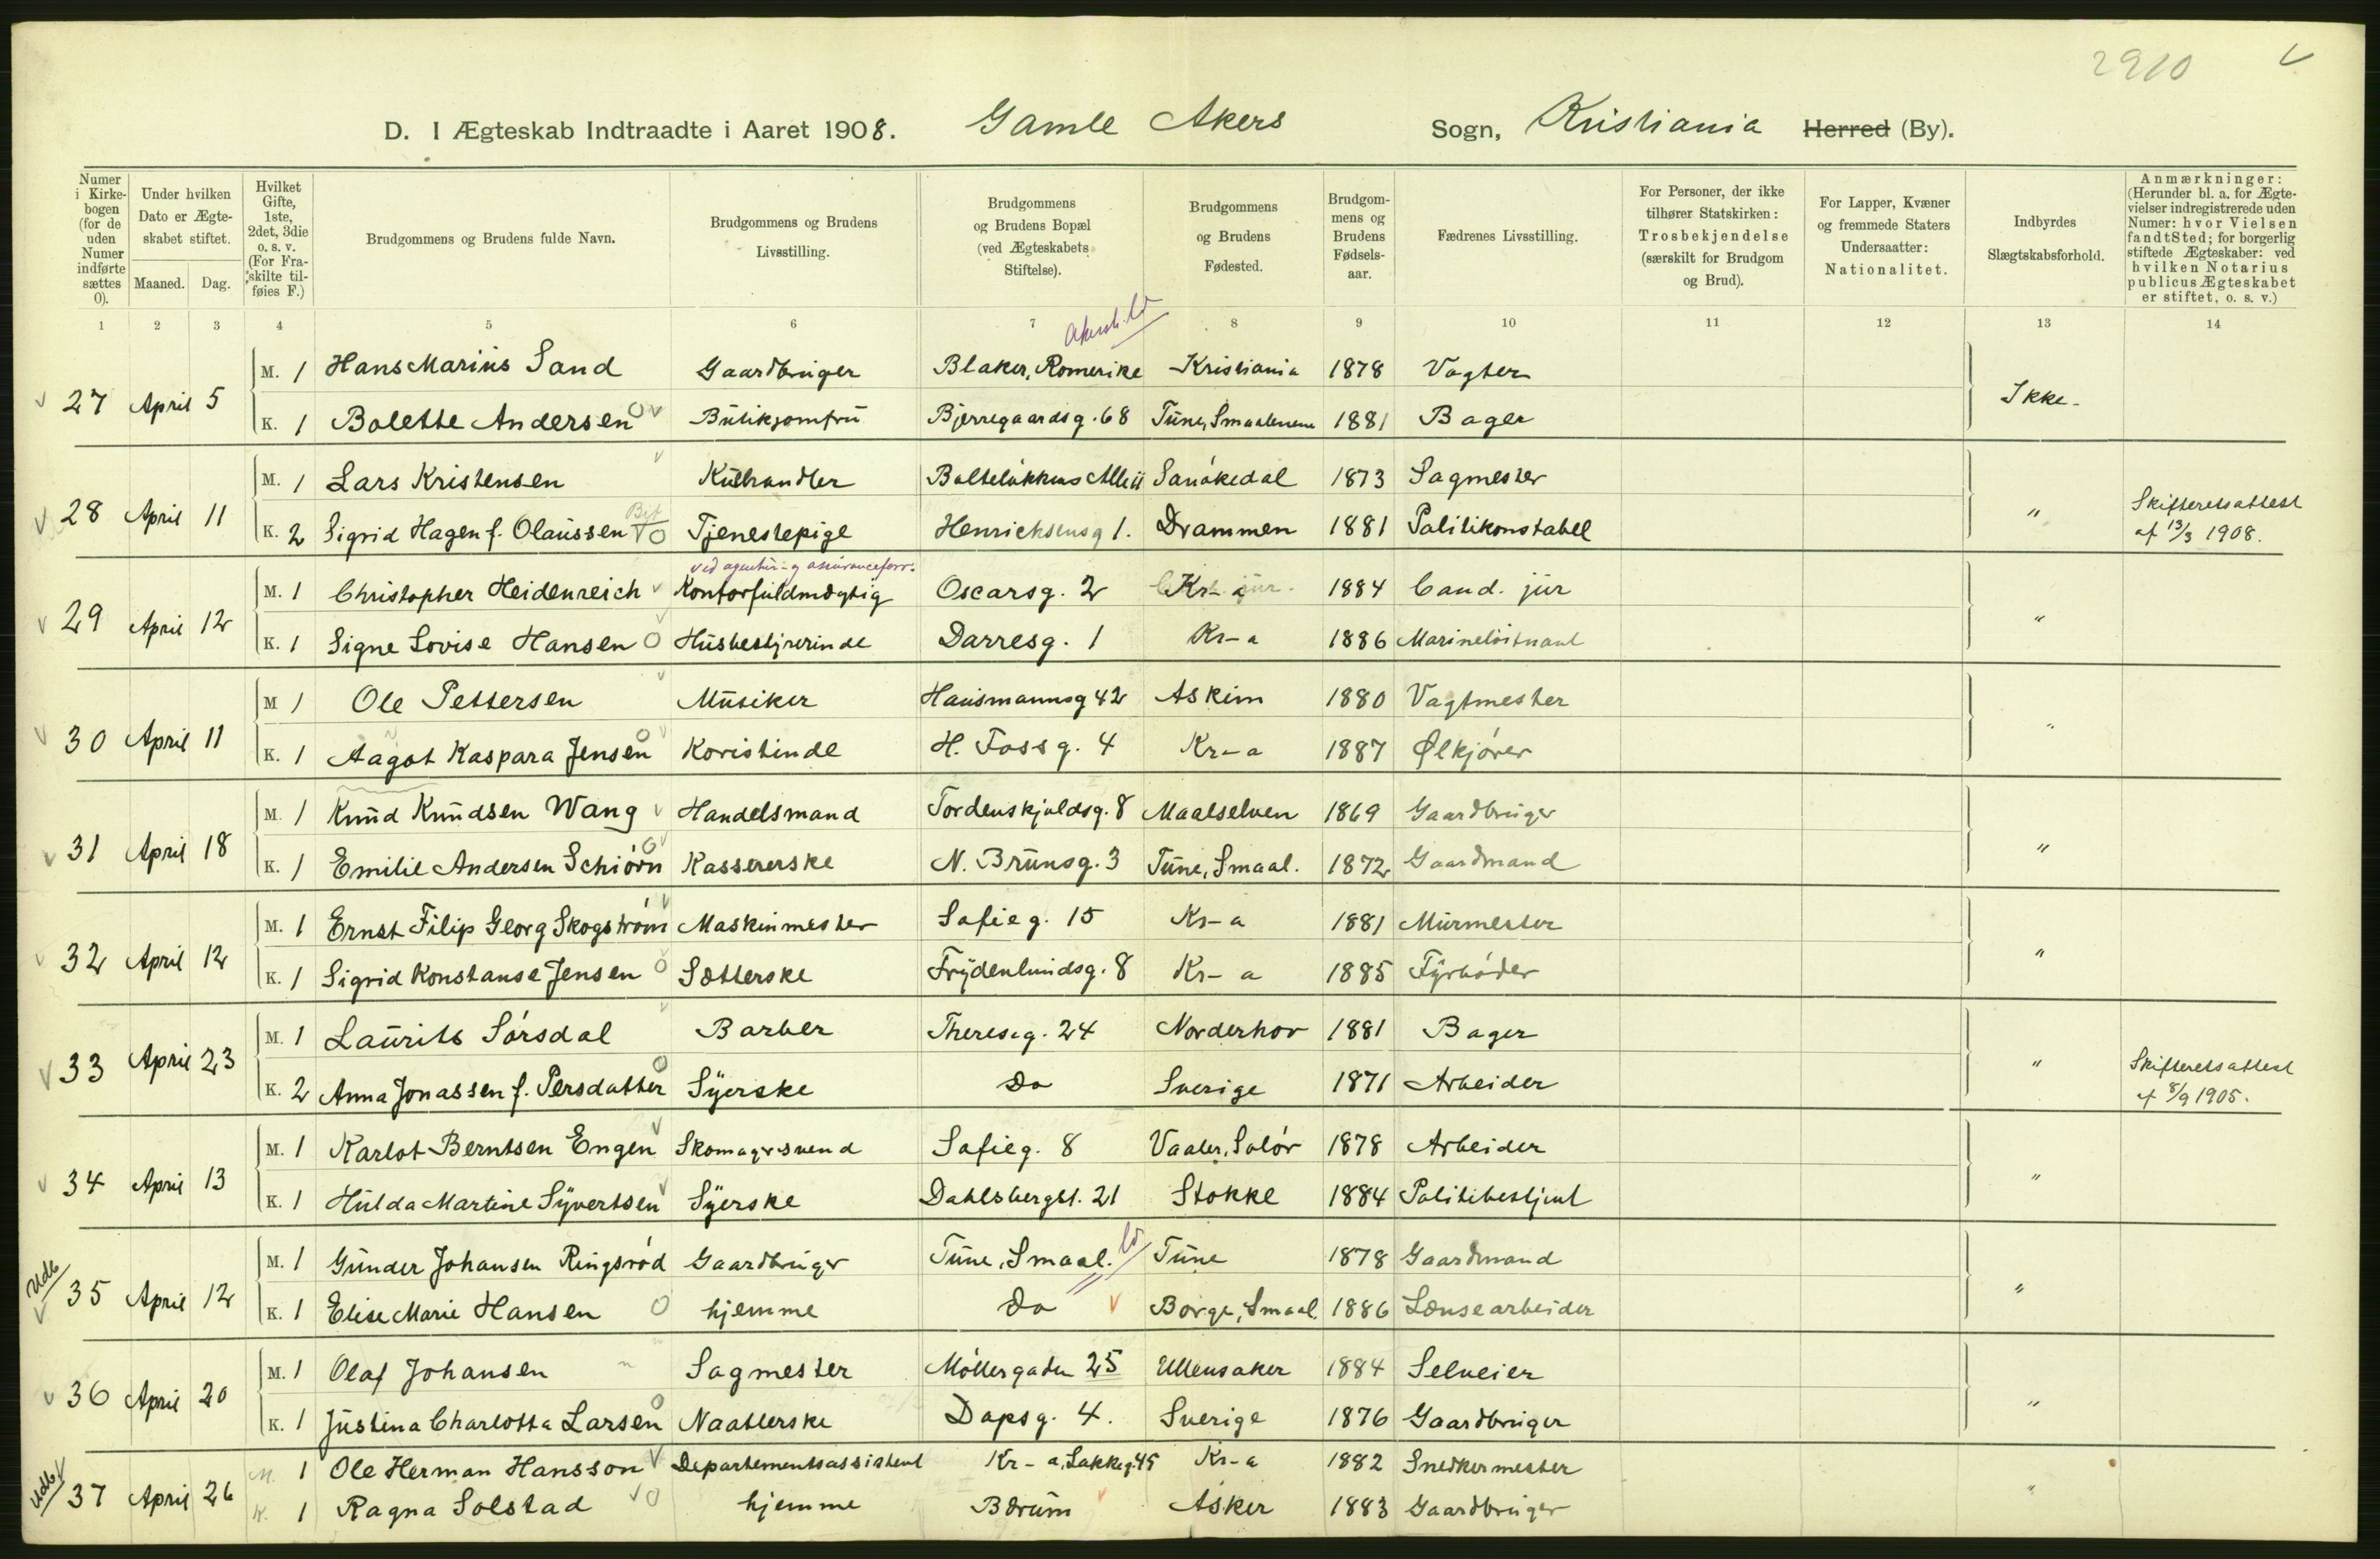 2910
D. I Ægteskab Indtraadte i Aaret 1908. Gamle Akers Sogn, Kristiania Herred (By).
Numer i Kirkebogen (for de uden Numer indførte sættes 0). Under hvilken Dato er Ægteskabet stiftet. Maaned. Dag. Hvilket Gifte, 1ste, 2det, 3die o. s. v. (For Fraskilte tilføies F.) Brudgommens og Brudens fulde Navn. Brudgommens og Brudens Livsstilling. Brudgommens og Brudens Bopæl (ved Ægteskabets Stiftelse). Brudgommens og Brudens Fødested. Brudgommens og Brudens Fødselsaar. Fædrenes Livsstilling. For Personer, der ikke tilhører Statskirken: Trosbekjendelse (særskilt for Brudgom og Brud). For Lapper, Kvæner og fremmede Staters Undersaatter: Nationalitet. Indbyrdes Slægtskabsforhold. Anmærkninger: (Herunder bl. a. for Ægtevielser indregistrerede uden Numer: hvor Vielsen fandt Sted; for borgerlig stiftede Ægteskaber: ved hvilken Notarius publicus Ægteskabet er stiftet, o. s. v.)
1 2 3 4 5 6 7 8 9 10 11 12 13 14
M. 1 Hans Marius Sand Gaardbruger Blaker, Romerike Kristiania 1878 Vagter
27 April 5 Ikke
K. 1 Bolette Andersen Butikjomfru Bjerregaardsg. 68 Tune, Smaalenene 1881 Bager
M. 1 Lars Kristensen Kulhandler Balteløkkens Allé ii Sanøkedal 1873 Sagmester
28 April 11 "
K. 2 Sigrid Hagen f. Olaussen Tjenestepige Henrichsensg 1. Drammen 1881 Politikonstabel Skifteretsattest af 13/3 1908.
ved agentur- og assuranceforr.
M. 1 Christopher Heidenreich Kontorfuldmægtig Oscarsg. 2 Kr-a 1884 Cand. jur
29 April 12 "
K. 1 Signe Lovise Hansen Husbestyrerinde Darresg. 1 Kr-a 1886 Marineløitnant
M 1 Ole Pettersen Musiker Hausmannsg 42 Askim 1880 Vagtmester
30 April 11 "
K. 1 Aagot Kaspara Jensen Koristinde H. Fossg. 4 Kr-a 1887 Ølkjører
M. 1 Knud Knudsen Wang Handelsmand Tordenskjoldsg. 8 Maalselven 1869 Gaardbruger
31 April 18 "
K. 1 Emilie Andersen Schiørn Kassererske N. Brunsg. 3 Tune, Smaal. 1872 Gaardmand
M. 1 Ernst Filip Georg Skogstrøm Maskinmester Sofieg. 15 Kr-a 1881 Murmester
32 April 12 "
K. 1 Sigrid Konstanse Jensen Sætterske Frydenlundsg. 8 Kr-a 1885 Fyrbøder
M. 1 Laurits Sørsdal Barber Thereseg. 24 Norderhov 1881 Bager
33 April 23 "
K. 2 Anna Jonassen f. Persdatter Syerske Do Sverige 1871 Arbeider Skifteretsattest af 8/9 1905.
M. 1 Karlot Berntsen Engen Skomagersvend Sofieg. 8 Vaaler, Solør 1878 Arbeider
34 April 13 "
K. 1 Hulda Martine Syvertsen Syerske Dahlsbergst. 21 Stokke 1884 Politibetjent
Udb
M. 1 Gunder Johansen Ringsrød Gaardbruger Tune, Smaal. Tune 1878 Gaardmand
35 April 12 "
K. 1 Elise Marie Hansen hjemme Do Borge, Smaal 1886 Lensearbeider
M. 1 Olaf Johansen Sagmester Møllergaden 25 Ullensaker 1884 Selveier
36 April 20 "
K. 1 Justina Charlotta Larsen Naatlerske Dopsg. 4. Sverige 1876 Gaardbruger
Udb
M. 1 Ole Herman Hansson Departementsassistent Kr-a, Løkkeg. 45 Kr-a 1882 Snedkermester
37 April 26 "
K. 1 Ragna Solstad hjemme Bærum Asker 1883 Gaardbruger